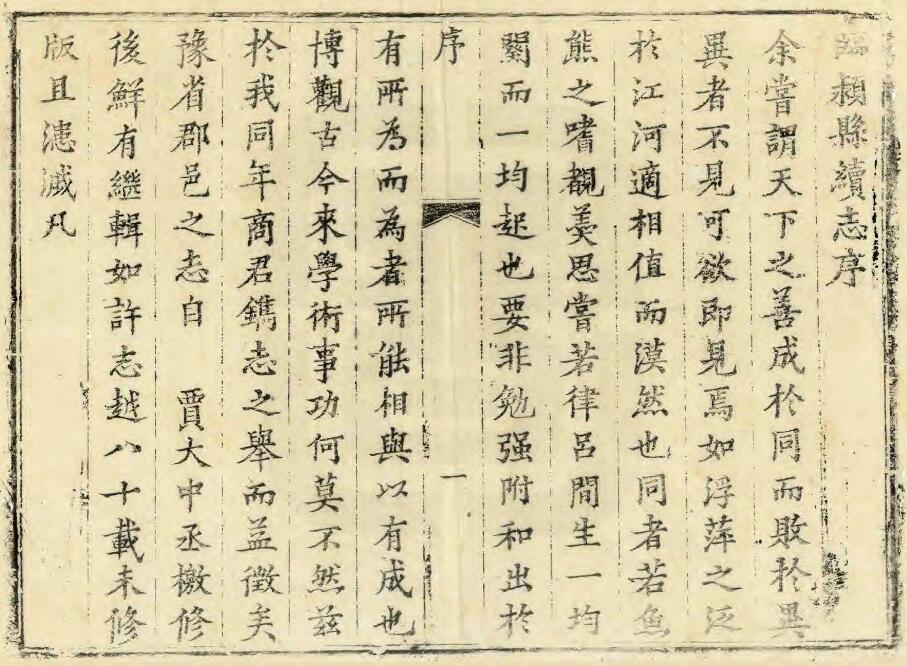 臨潁縣續志序
余嘗謂天下之善成於同而敗於異
異者不見可欲即見焉如浮萍之泛
於江河適相值而漠然也同者若魚
熊之嗜覩羹思嘗若律呂間生一均
闋而一均起也要非勉强附和出於
序
一
有所為而為者所能相與以有成也
博觀古今來學術事功何莫不然茲
於我同年商君鐫志之舉而益徵矣
豫省郡邑之志自 賈大中丞檄修
後鮮有繼輯如許志越八十載未修
版且漶滅凡